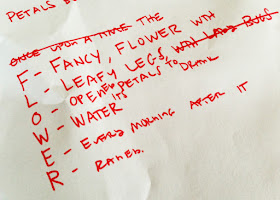 PETALS
ONCE UPON A TIME THE
F - FANCY, FLOWER WITH
L - LEAFY LEGS WITH LADY BUGS
O - OPENED ITS PETALS TO DRINK
W - WATER
E - EVERY MORNING AFTER IT
R - RAINED.